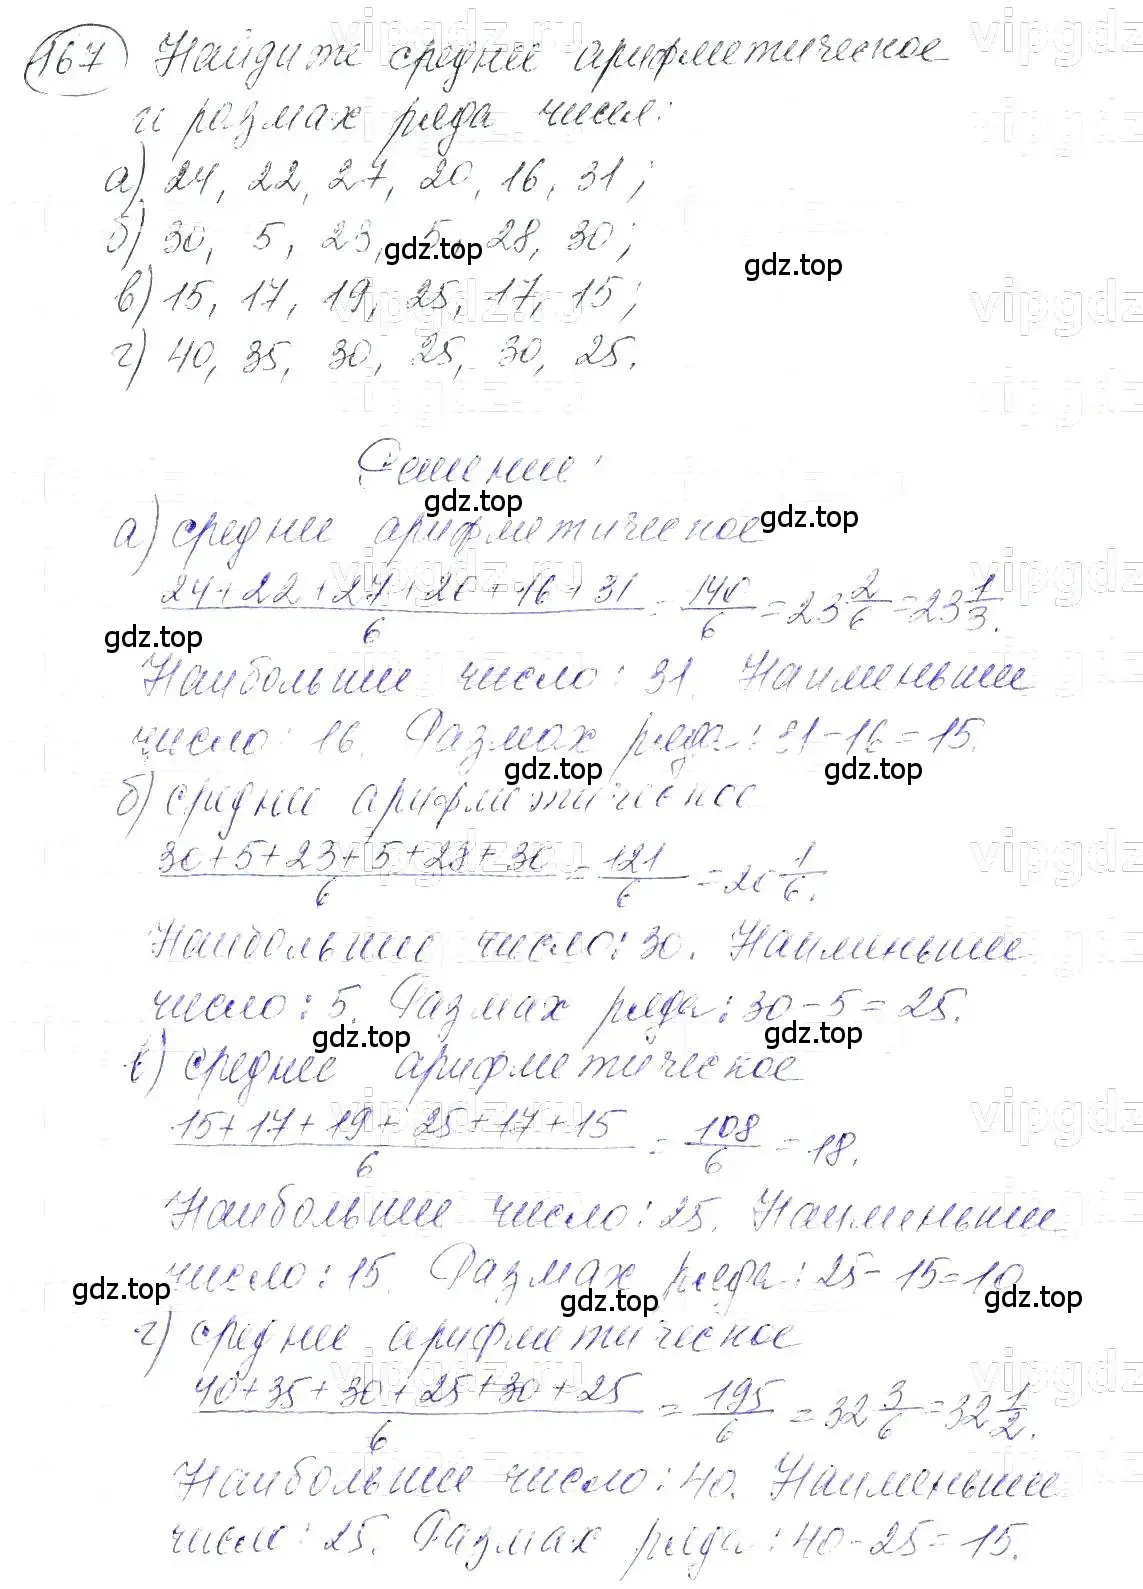 167 Найдите среднее арифметическое
и размах ряда чисел:
а) 24, 22, 27, 20, 16, 31;
б) 30, 5, 23, 5, 28, 30;
в) 15, 17, 19, 25, 17, 15;
г) 40, 35, 30, 25, 30, 25.
Решение:
а) среднее арифметическое
(24+22+27+20+16+31)/6 = 140/6 = 23 2/6 = 23 1/3.
Наибольшее число: 31. Наименьшее
число: 16. Размах ряда: 31-16=15.
б) среднее арифметическое
(30+5+23+5+28+30)/6 = 121/6 = 20 1/6.
Наибольшее число: 30. Наименьшее
число: 5. Размах ряда: 30-5=25.
в) среднее арифметическое
(15+17+19+25+17+15)/6 = 108/6 = 18.
Наибольшее число: 25. Наименьшее
число: 15. Размах ряда: 25-15=10
г) среднее арифметическое
(40+35+30+25+30+25)/6 = 195/6 = 32 3/6 = 32 1/2.
Наибольшее число: 40. Наименьшее
число: 25. Размах ряда: 40-25=15.
gdz.top
gdz.top
gdz.top
gdz.top
gdz.top
gdz.top
gdz.top
gdz.top
gdz.top
gdz.top
gdz.top
gdz.top